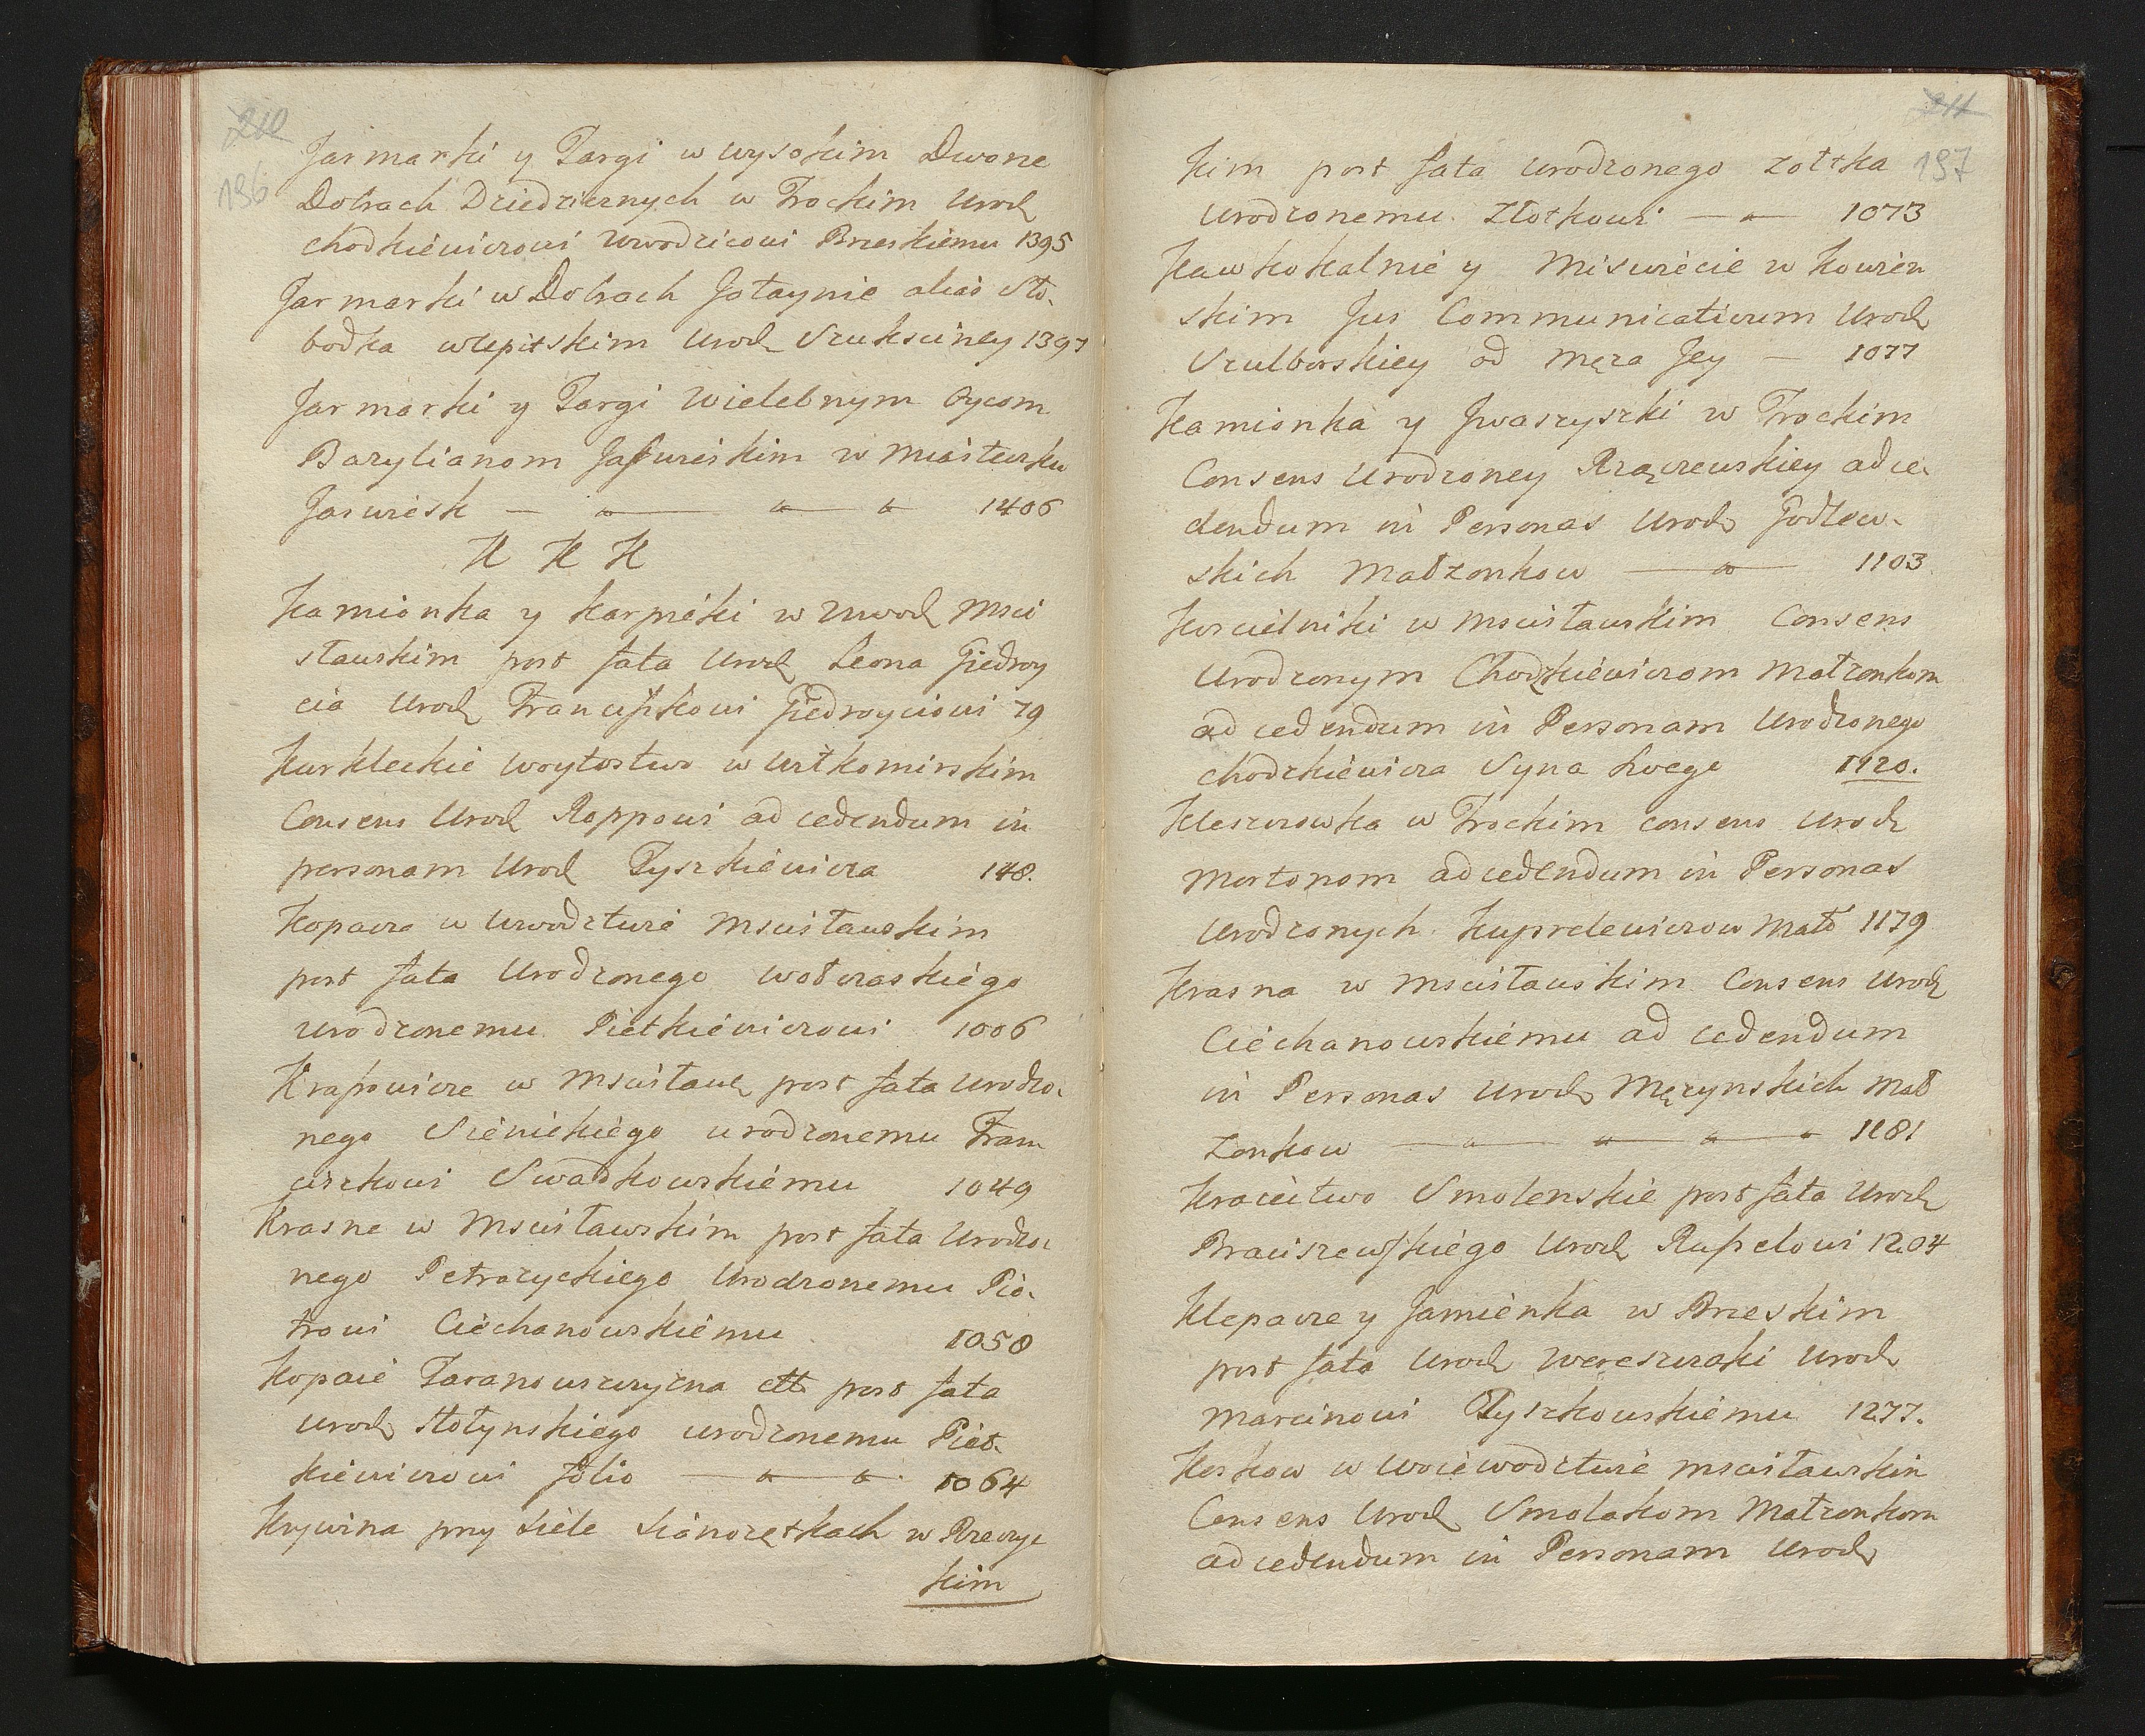 210
196
Jarmarki y Targi w wysokim Dworze
Dobrach Dziedzicznych w Trockim Urod
chodkiewiczowi wwodzicowi Brzeskiemu 1395
Jarmarki w Dobrach Jotaynie alias Sło-
bodka wlepitskim Urod Szukscincy 1397
Jarmarki y Targi Wielebnym Oycom
Bazylianom Jaswieiskim w Miasteczku
Jaswiesk — 1406
K K K
Kamionka y Karpieki w wwod Msci
sławskim post fata Urod Leona Giedroy
cia Urod Franciszkowi Giedroyciowi 79
Kurkleckie woytostwo w Wiłkomirskim
Consens Urod Roppowi ad cedendum in
personam Urod Tyszkiewicza 148.
Kopacze w wwodztwie Mscisławskim
post fata Urodzonego wołczaskiego
urodzonemu Pietkiewiczowi 1006
Krapiwicze w Mscisław post fata Urodzo-
nego Sienickiego urodzonemu Fran
ciszkowi Swadkowskiemu 1049
Krasne w Mscisławskim post fata Urodzo-
nego Petrażyckiego Urodzonemu Pio-
trowi Ciechanowskiemu 1058
Kopacie Taranowszczyzna ett post fata
Urod Hołynskiego urodzonemu Piet-
kiewiczowi folio — 1064
Krywina przy siele sianożętkach w Rzeczyc
kim
211
197
kim post fata urodzonego żołtka
Urodzonemu Złotkowi — 1073
Kawkokalnie y Miswiecie w Kowien
skim Jus Communicativum Urod
Szulborskiey od Męża Jey — 1077
Kamionka y Jwaszyszki w Trockim
Consens Urodzoney Rzączewskiey ad ce-
dendum in Personas Urod Godlew-
skich Małżonkow — 1103
Koscielniki w Mscisławskim Consens
Urodzonym Chodzkiewiczom Małżonkom
ad cedendum in Personam Urodzonego
Chodzkiewicza Syna Swego 1120.
Kleszczowka w Trockim consens Urod
Mortonom ad cedendum in Personas
Urodzonych Kuprelewiczow Małż 1179
Krasna w Mscisławskim Consens Urod
Ciechanowskiemu ad cedendum
in Personas Urod Mężynskich Mał
żonkow — 1181
Kraicitwo Smolenskie post fata Urod
Braciszewskiego Urod Rupelowi 1204
Klepacze y Jamienka w Brzeskim
post fata Urod Wereszczaki Urod
Marcinowi Tyszkowskiemu 1277.
Koskow w Woiewodztwie Mscisławskim
Consens Urod Smolakom Małżonkom
ad cedendum in Personam Urod